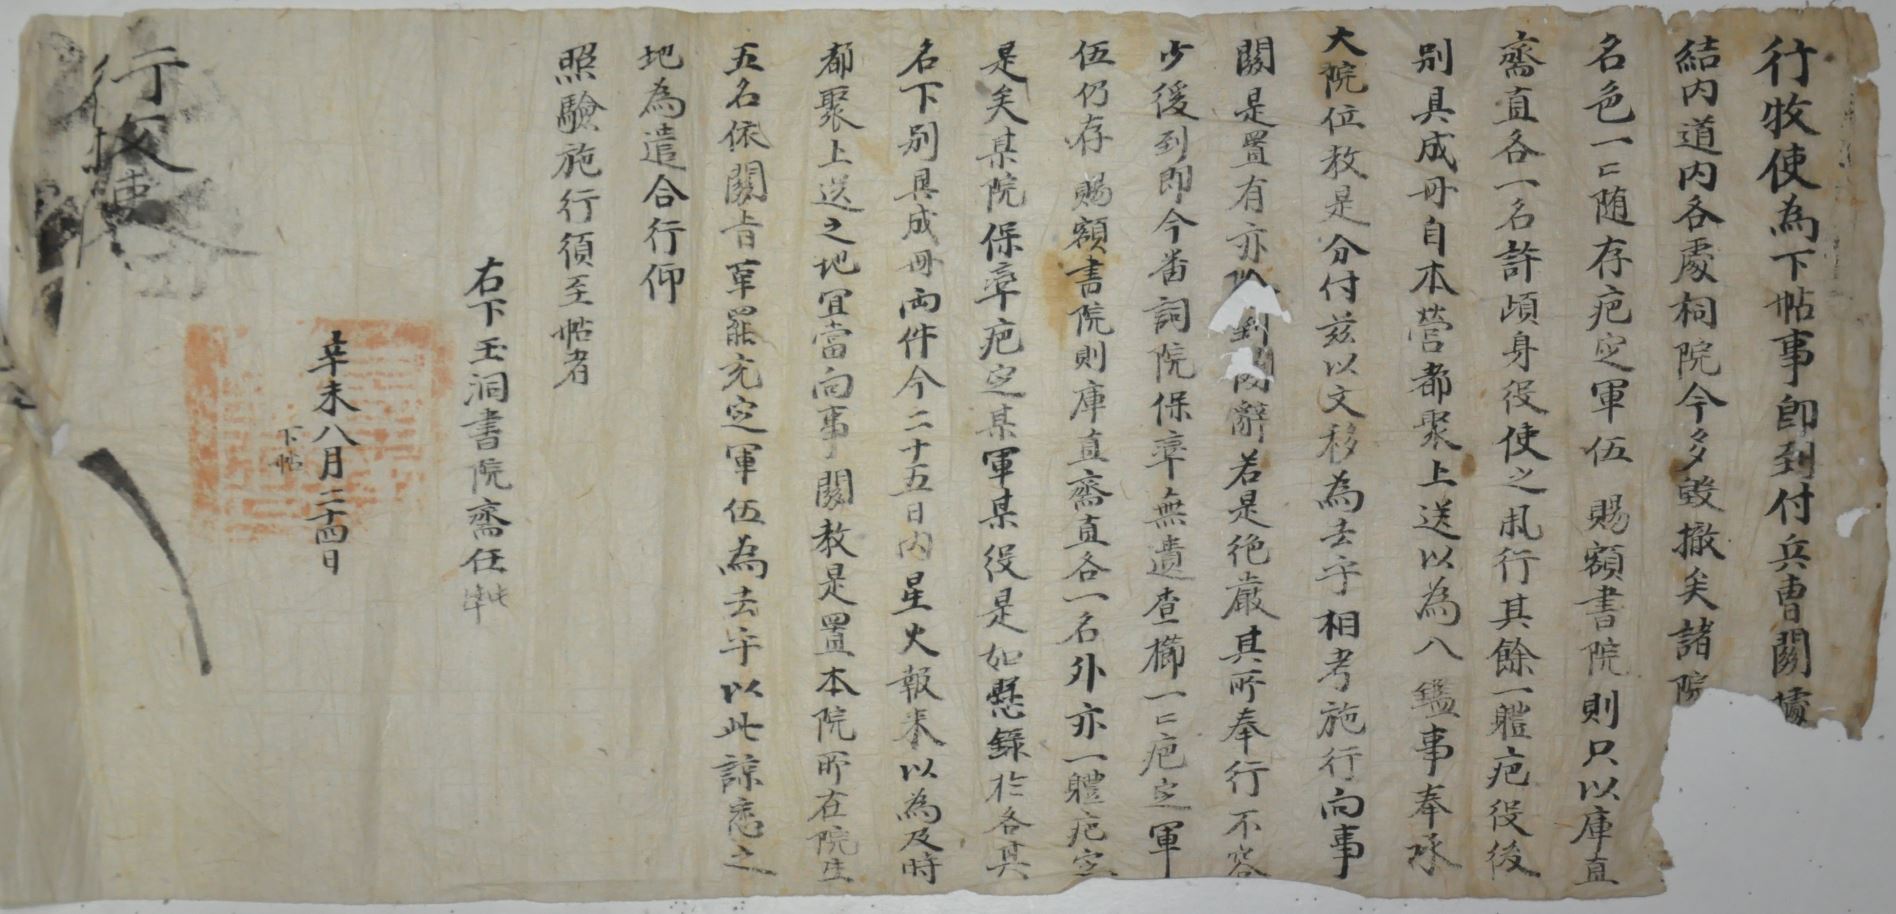 行牧使為下帖事卽到付兵曹關據
結內道內各處祠院今多毀撤矣諸院
名色一〻随存疤定軍伍 賜額書院則只以庫直
齋直各一名許頉身役使之凡行其餘一軆疤役後
別具成冊自本營都聚上送以為八鑑事奉承
大院位敎是分付玆以文移為去乎相考施行向事
關是置有亦 到關辭若是絶嚴其所奉行不容
少緩到卽今番詞院保率無遺查櫛一〻疤定軍
伍仍存 賜額書院則庫直齋直各一名外亦一軆疤定
是矣某院保率疤定某軍某役是如懸錄於各其
名下別具成冊兩件今二十五日內星火報来以為及時
都聚上送之地宜當向事關敎是置本院所在院生
五名依關旨革罷充定軍伍為去乎以此諒悉之
地為遣合行仰
照驗施行須至帖者
右下玉洞書院齋任
辛未八月二十四日
下帖
行牧使